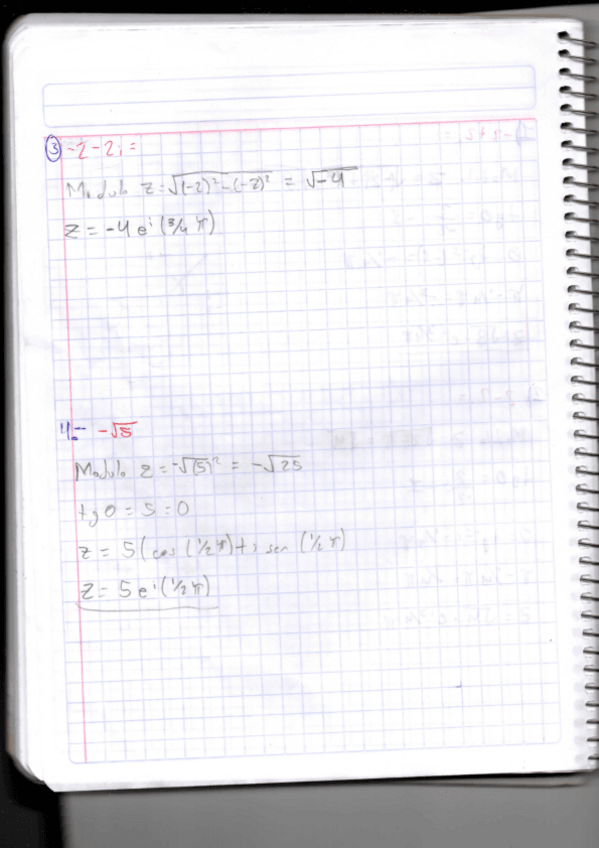 ③ -2-2i=
Modulo z=√(-2)²-(-2)² = √-4
z= -4 eⁱ (3/4 π)
4.- -√5
Modulo z= -√(5)² = -√25
tg0 = 5 = 0
z= 5(cos (1/2 π)+i sen (1/2 π)
z= 5 eⁱ (1/2 π)